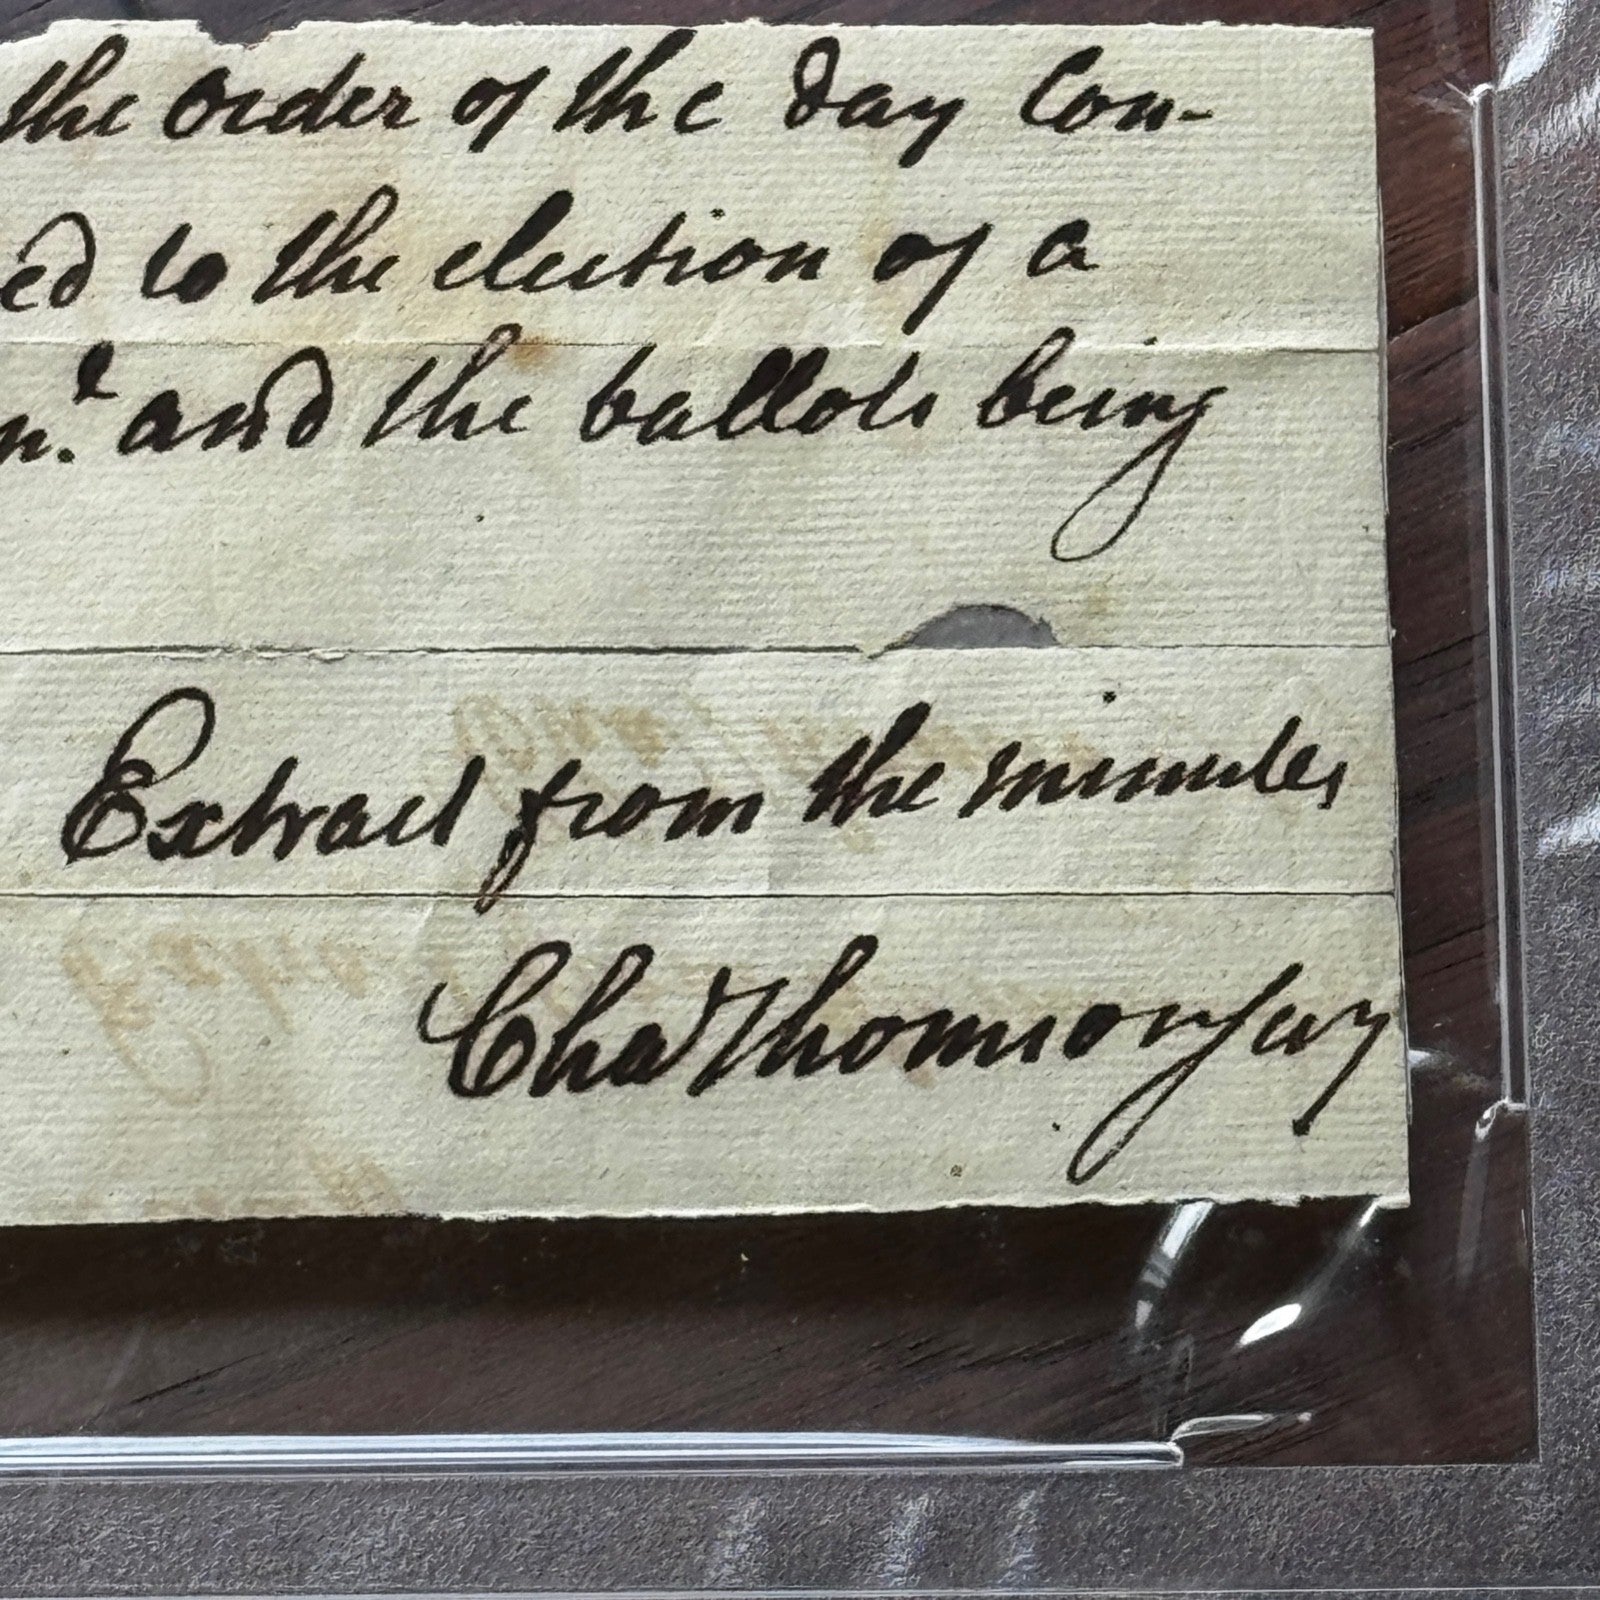 the Order of the day Con-
ed to the election of a
n.l and the ballots being
Extract from the minutes
Chas Thomson Secy